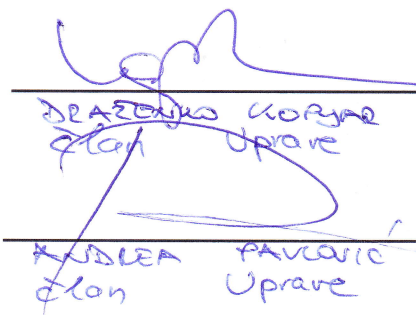 DRAŽENKO KOPJAR
član Uprave
ANDREA PAVLOVIĆ
član Uprave